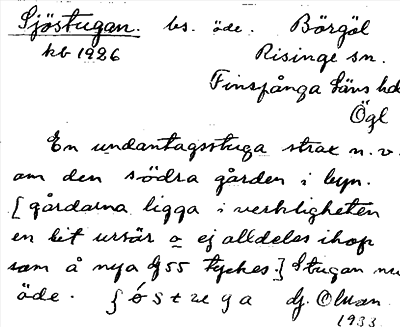 Sjöstugan. bs. öde. Börgöl
kb 1926 Risinge sn.
Finspånga läns hd
Ögl
En undantagsstuga strax n.v.
om den södra gården i byn.
[gårdarna ligga i verkligheten
en bit ursär o ej alldeles ihop
som å nya G55 tyckes.] Stugan nu
öde.
1933